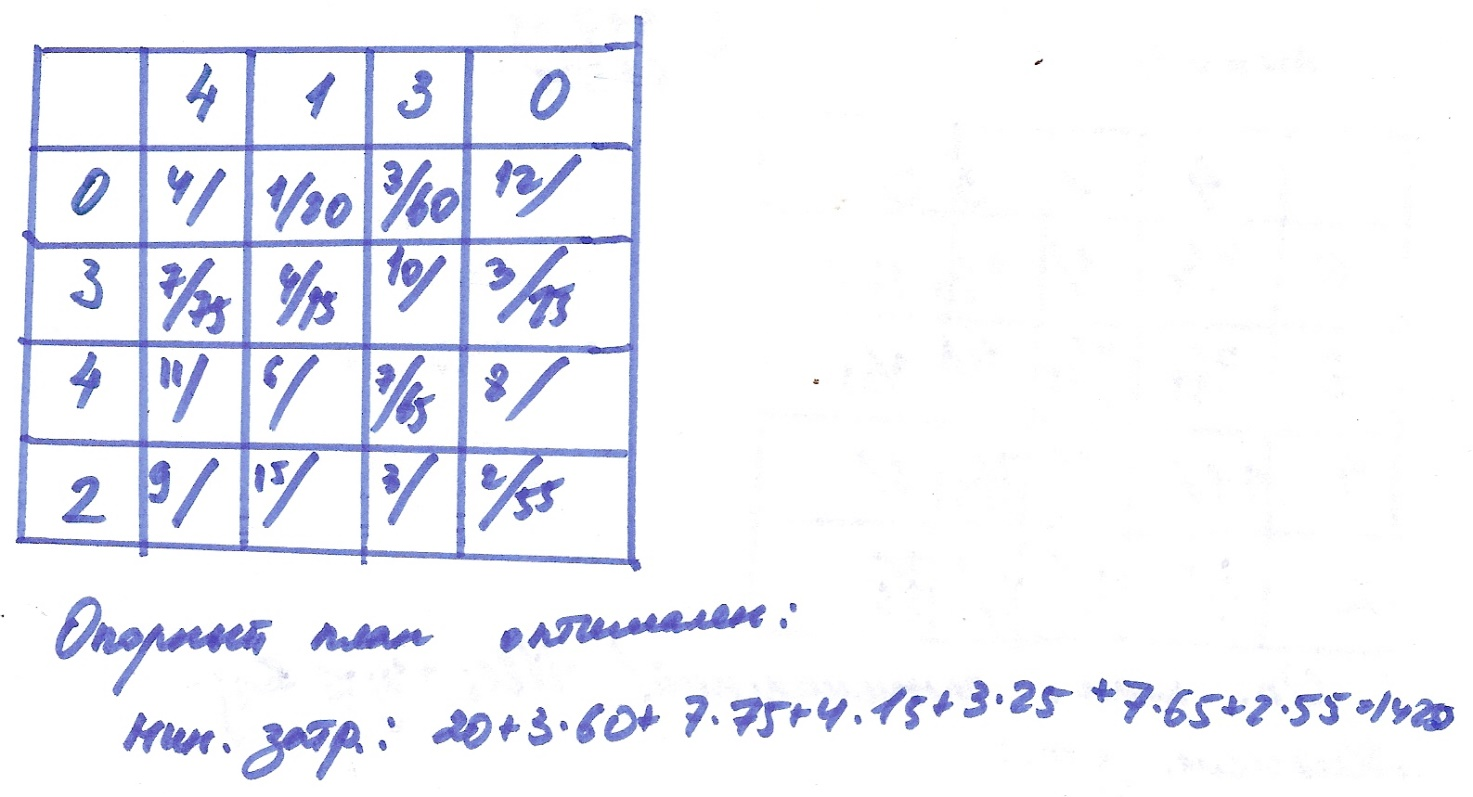 4 1 3 0
0 4/ 1/20 3/60 12/
3 7/75 4/15 10/ 3/25
4 11/ 6/ 7/65 8/
2 9/ 15/ 3/ 2/55
Опорный план оптимален:
мин. затр.: 20+3·60+7·75+4·15+3·25+7·65+2·55=1420